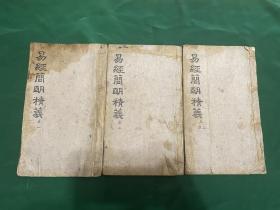 易經簡明積義
易經簡明積義
易經簡明積義